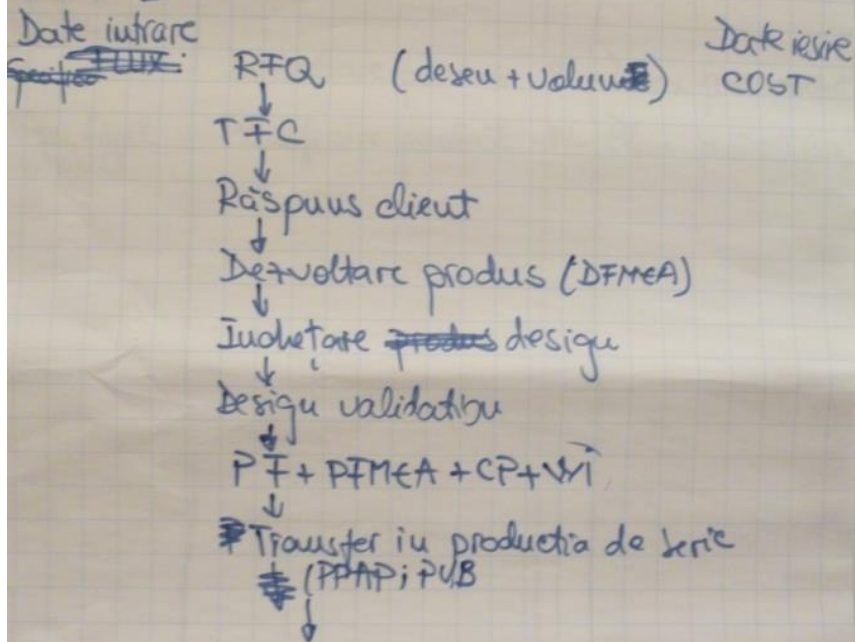 Date intrare
FLUX:
RFQ (desen + volum) Date iesire
COST
TFC
Răspuns client
Dezvoltare produs (DFMEA)
Înghețare produs design
Design validation
PF + PFMEA + CP + WI
Transfer in productia de serie
(PPAP;